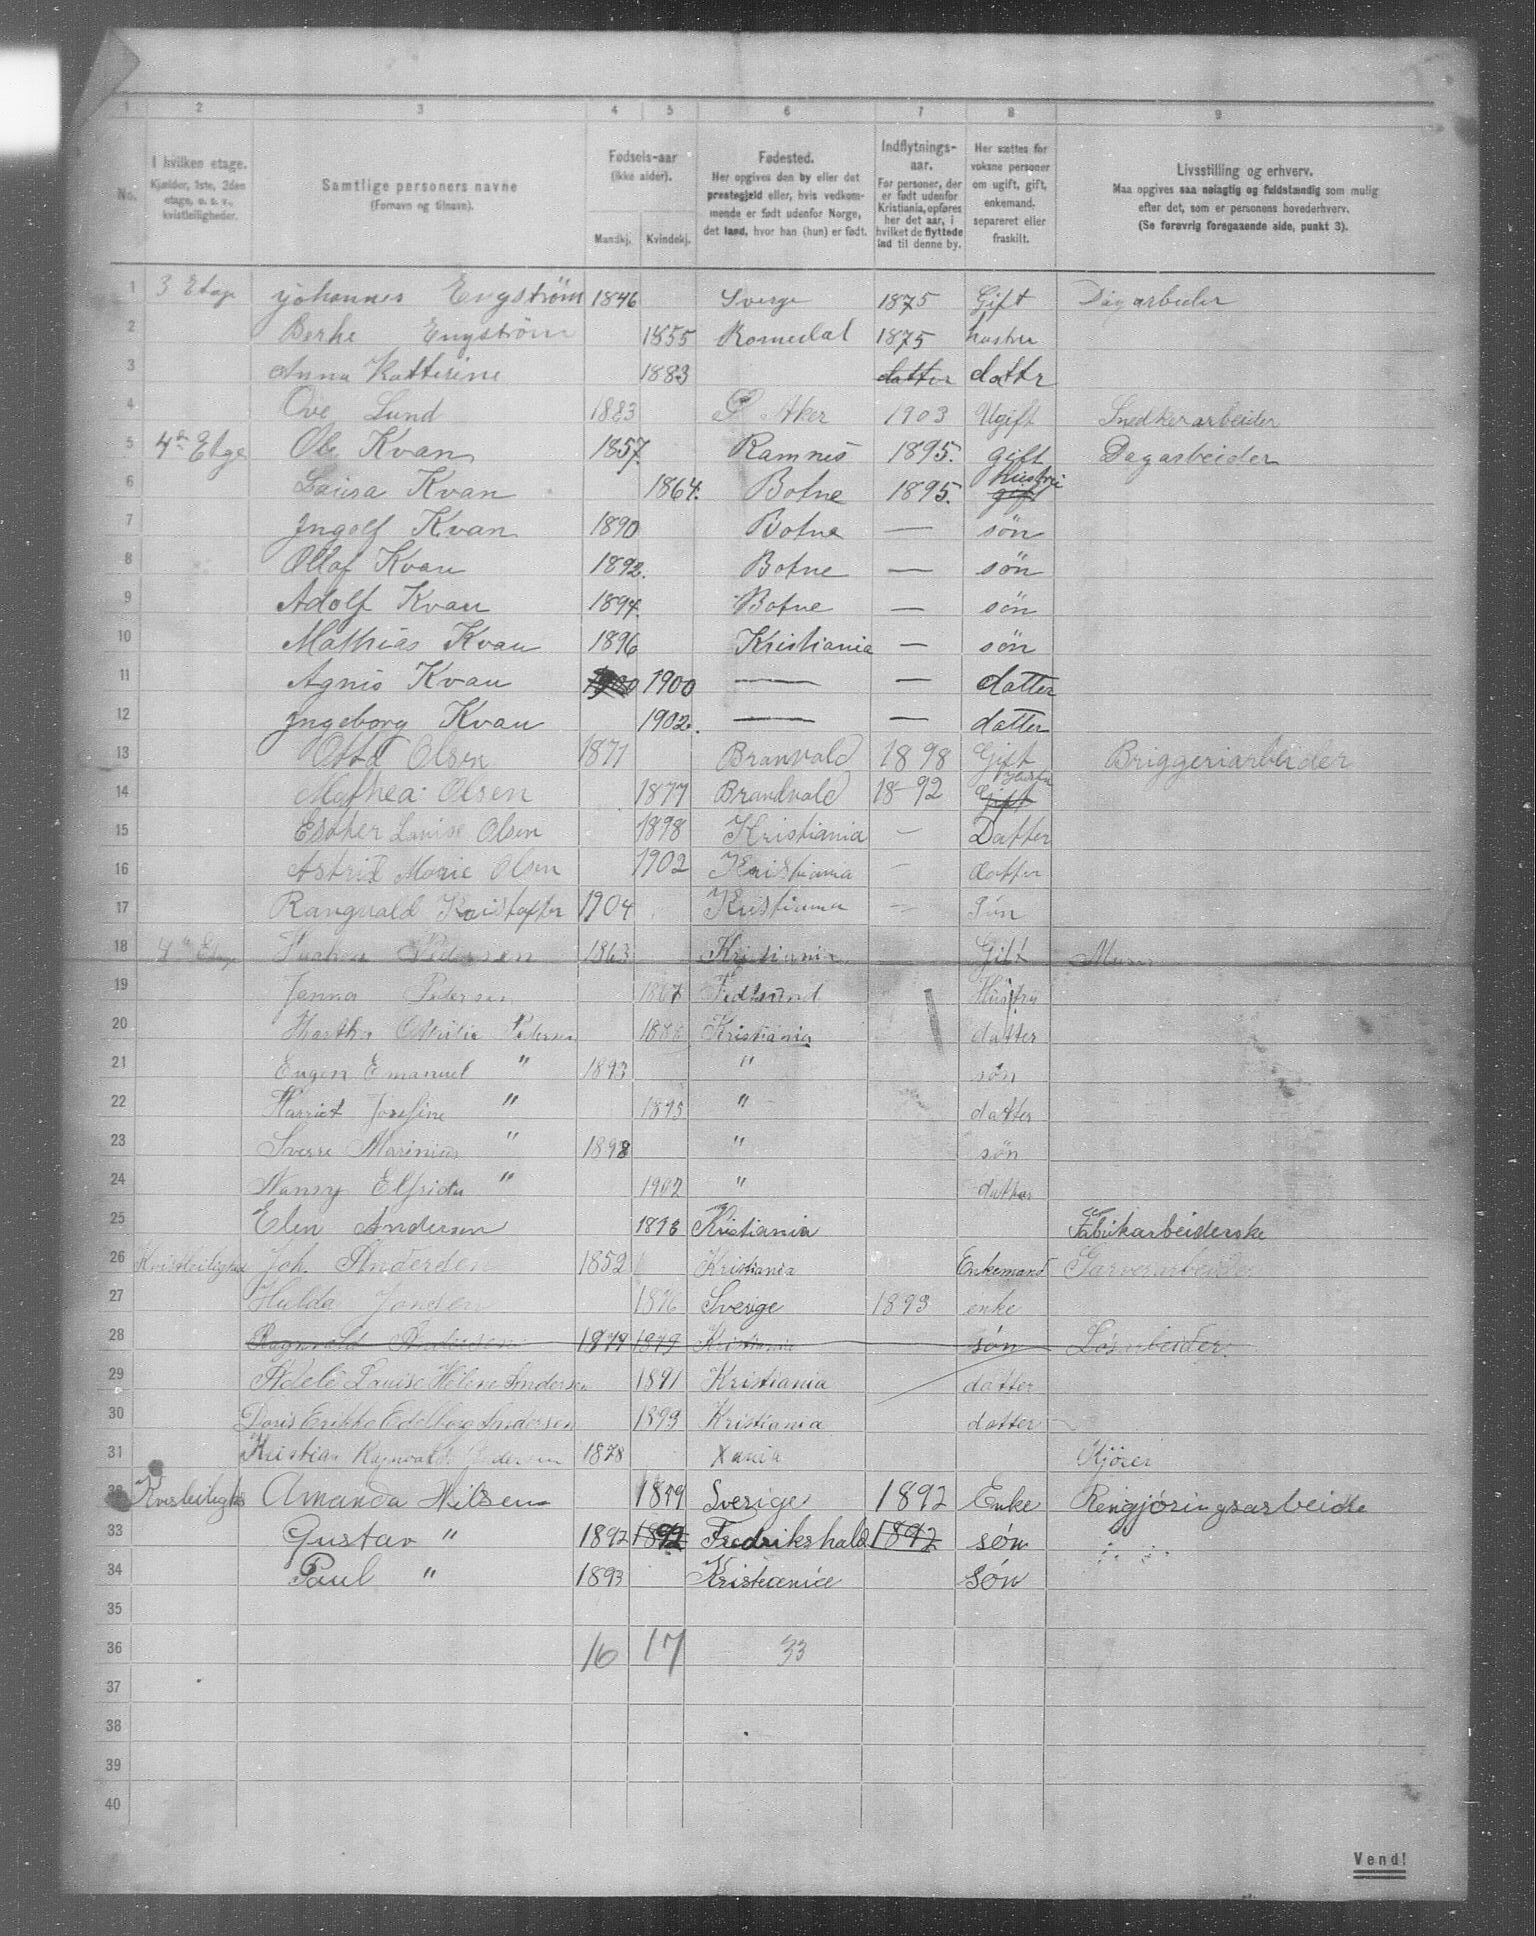 1 2 3 4 5 6 7 8 9
No.
I hvilken etage.
Kjælder, 1ste, 2den etage, o. s. v., kvistleiligheder.
Samtlige personers navne
(Fornavn og tilnavn).
Fødsels-aar
(ikke alder).
Mandkj. Kvindekj.
Fødested.
Her opgives den by eller det prestegjeld eller, hvis vedkommende er født udenfor Norge, det land, hvor han (hun) er født.
Indflytnings-aar.
For personer, der er født udenfor Kristiania, opføres her det aar, i hvilket de flyttede ind til denne by.
Her sættes for voksne personer om ugift, gift, enkemand, separeret eller fraskilt.
Livsstilling og erhverv.
Maa opgives saa nøiagtig og fuldstændig som mulig efter det, som er personens hovederhverv.
(Se forøvrig foregaaende side, punkt 3).
1 3 Etage Johannes Engström 1846 Sverge 1875 Gift Dagarbeider
2 Berhe Engström 1855 Romedal 1875 hustru
3 Anna Katterine 1883 datter dattr
4 Ove Lund 1883 Aker 1903 Ugift Snedkerarbeider
5 4de Etge Ole Kvan 1857. Ramnes 1895. gift Dagarbeider
6 Laura Kvan 1864. Botne 1895. Hustru gift
7 Ingolf Kvan 1890 Botne — søn
8 Ollaf Kvan 1892. Botne — søn
9 Adolf Kvan 1894. Botne — søn
10 Mathias Kvan 1896 Kristiania — søn
11 Agnis Kvan 1900 1900 — — datter
12 Ingeborg Kvan 1902. — — datter
13 Otto Olsen 1871 Branvald 1898 Gift Bryggeriarbeider
14 Mathea Olsen 1877 Brandvald 1892 Hustru Gift
15 Esther Louise Olsen 1898 Kristiania — Datter
16 Astrid Marie Olsen 1902 Kristiania — datter
17 Rangvald Kristoffer 1904 Kristiania — Søn
18 4de Etage Pedersen 1863 Kristiania Gift
19 Janna Pedersen Fedsund Hustru
20 Martha Otilie Pedersen Kristiania datter
21 Eugen Emanuel " 1893 " søn
22 Harriet Josefine " 1895 " datter
23 Sverre Marinius " 1898 " søn
24 Nansy Elfrida " 1902 " datter
25 Elen Andersen 1878 Kristiania Fabrikarbeiderske
26 Kvistleilighed Joh. Andersen 1852 Kristiania Enkemand Garverarbeider
27 Hulda Jonsen 1876 Sverige 1893 enke
28 Ragnvald Andersen 1879 1879 Kristiania søn Løsarbeider.
29 Adele Louise Helene Andersen 1891 Kristiania datter
30 Doris Erikka Edelborg Andersen 1893 Kristiania datter
31 Kristian Ragnvald Andersen 1878 Xania Kjører
32 Kvistleilighed Amanda Nilsen 1859 Sverige 1892 Enke Rengjøringsarbeide
33 Gustav " 1892 1892 Fredrikshald 1892 søn
34 Paul " 1893 Kristianice søn
35
36 16 17 33
37
38
39
40
Vend!